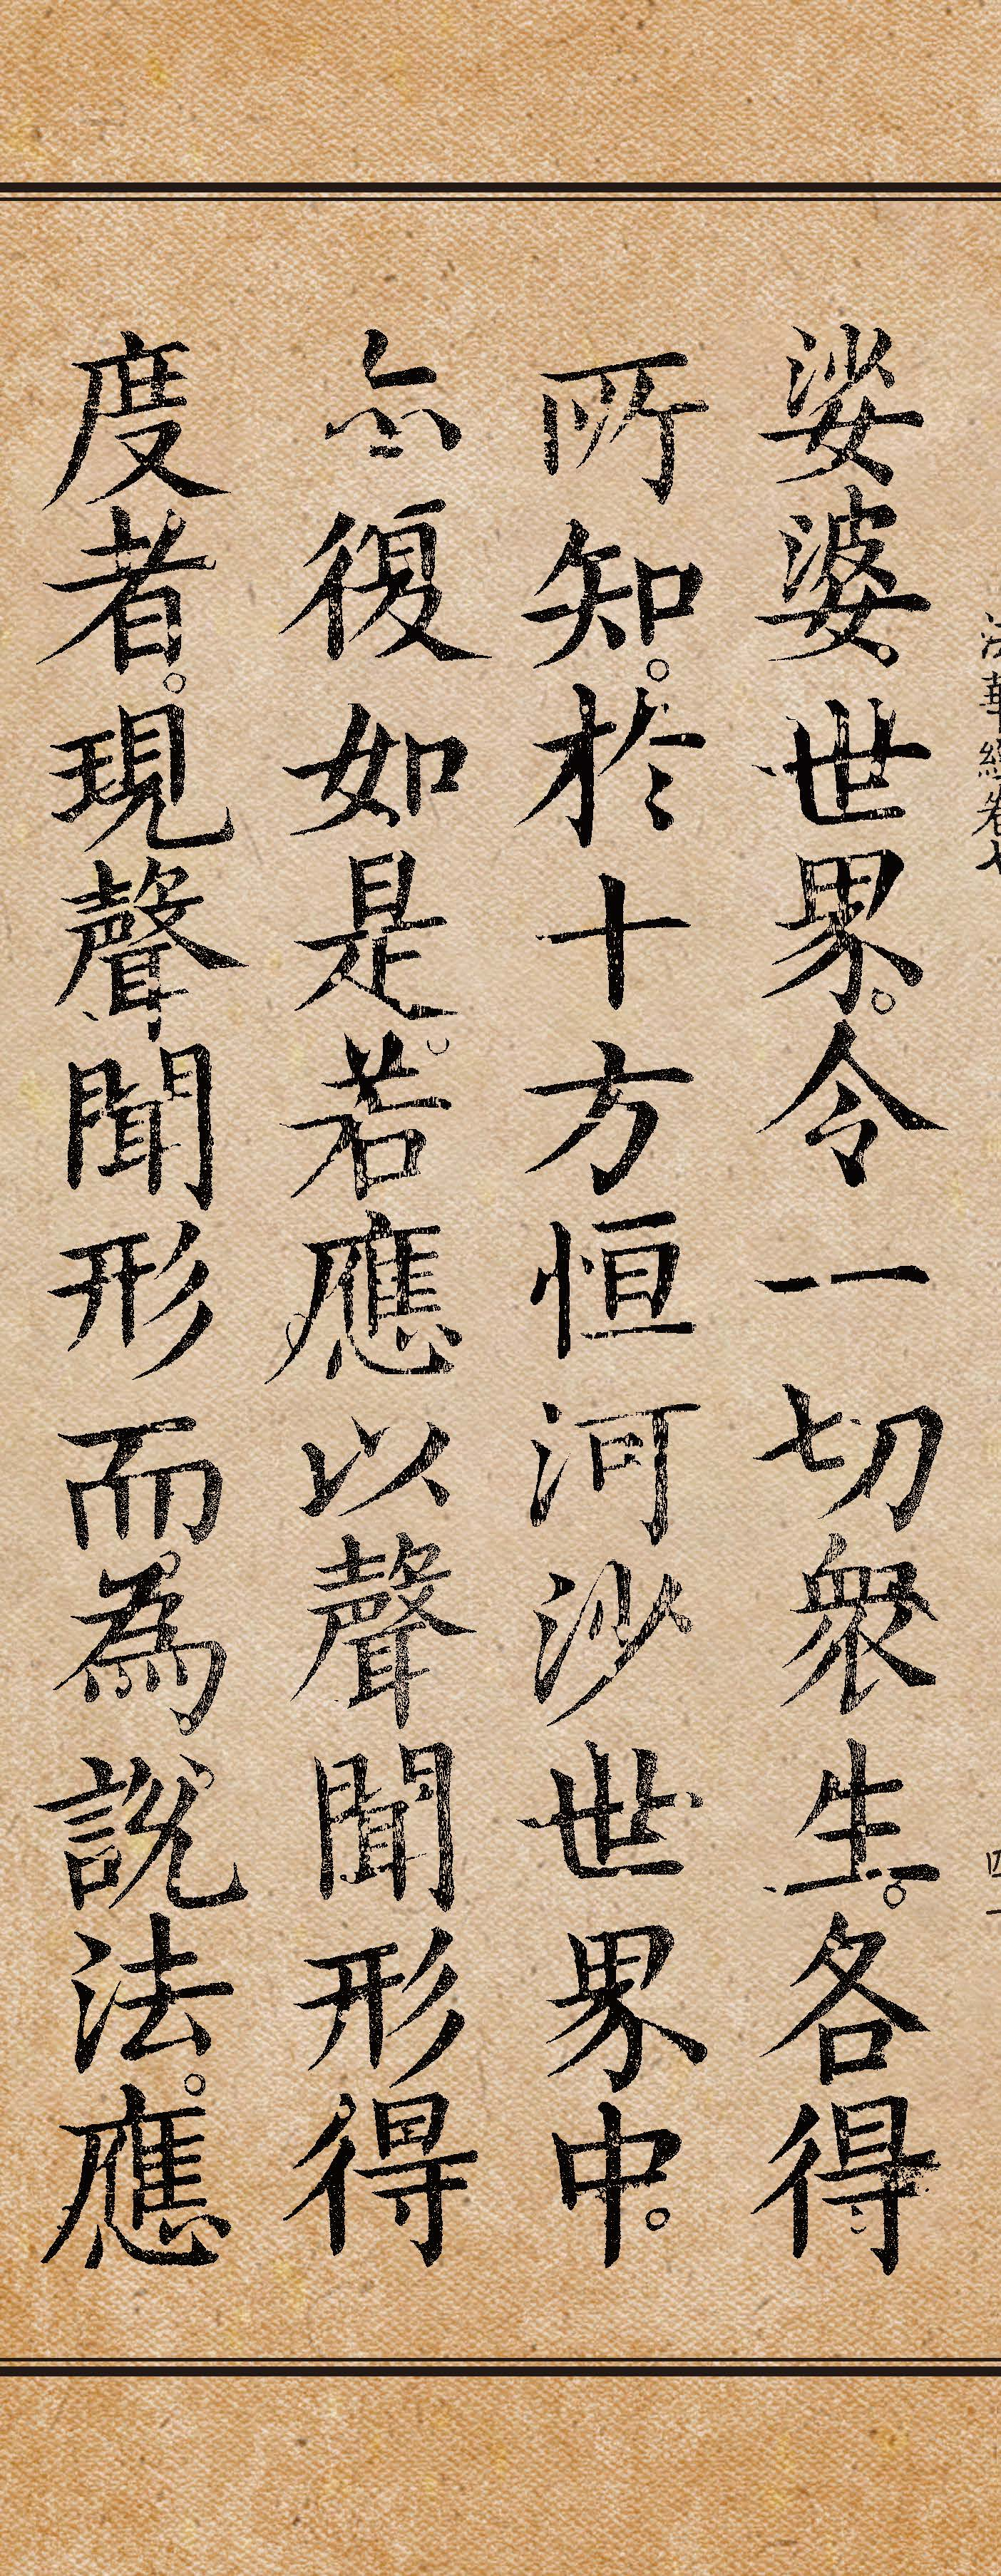 法華經卷七 四十
娑婆。世界。令一切衆生。各得
所知。於十方恒河沙世界中。
亦復如是。若應以聲聞形得
度者。現聲聞形而為說法。應